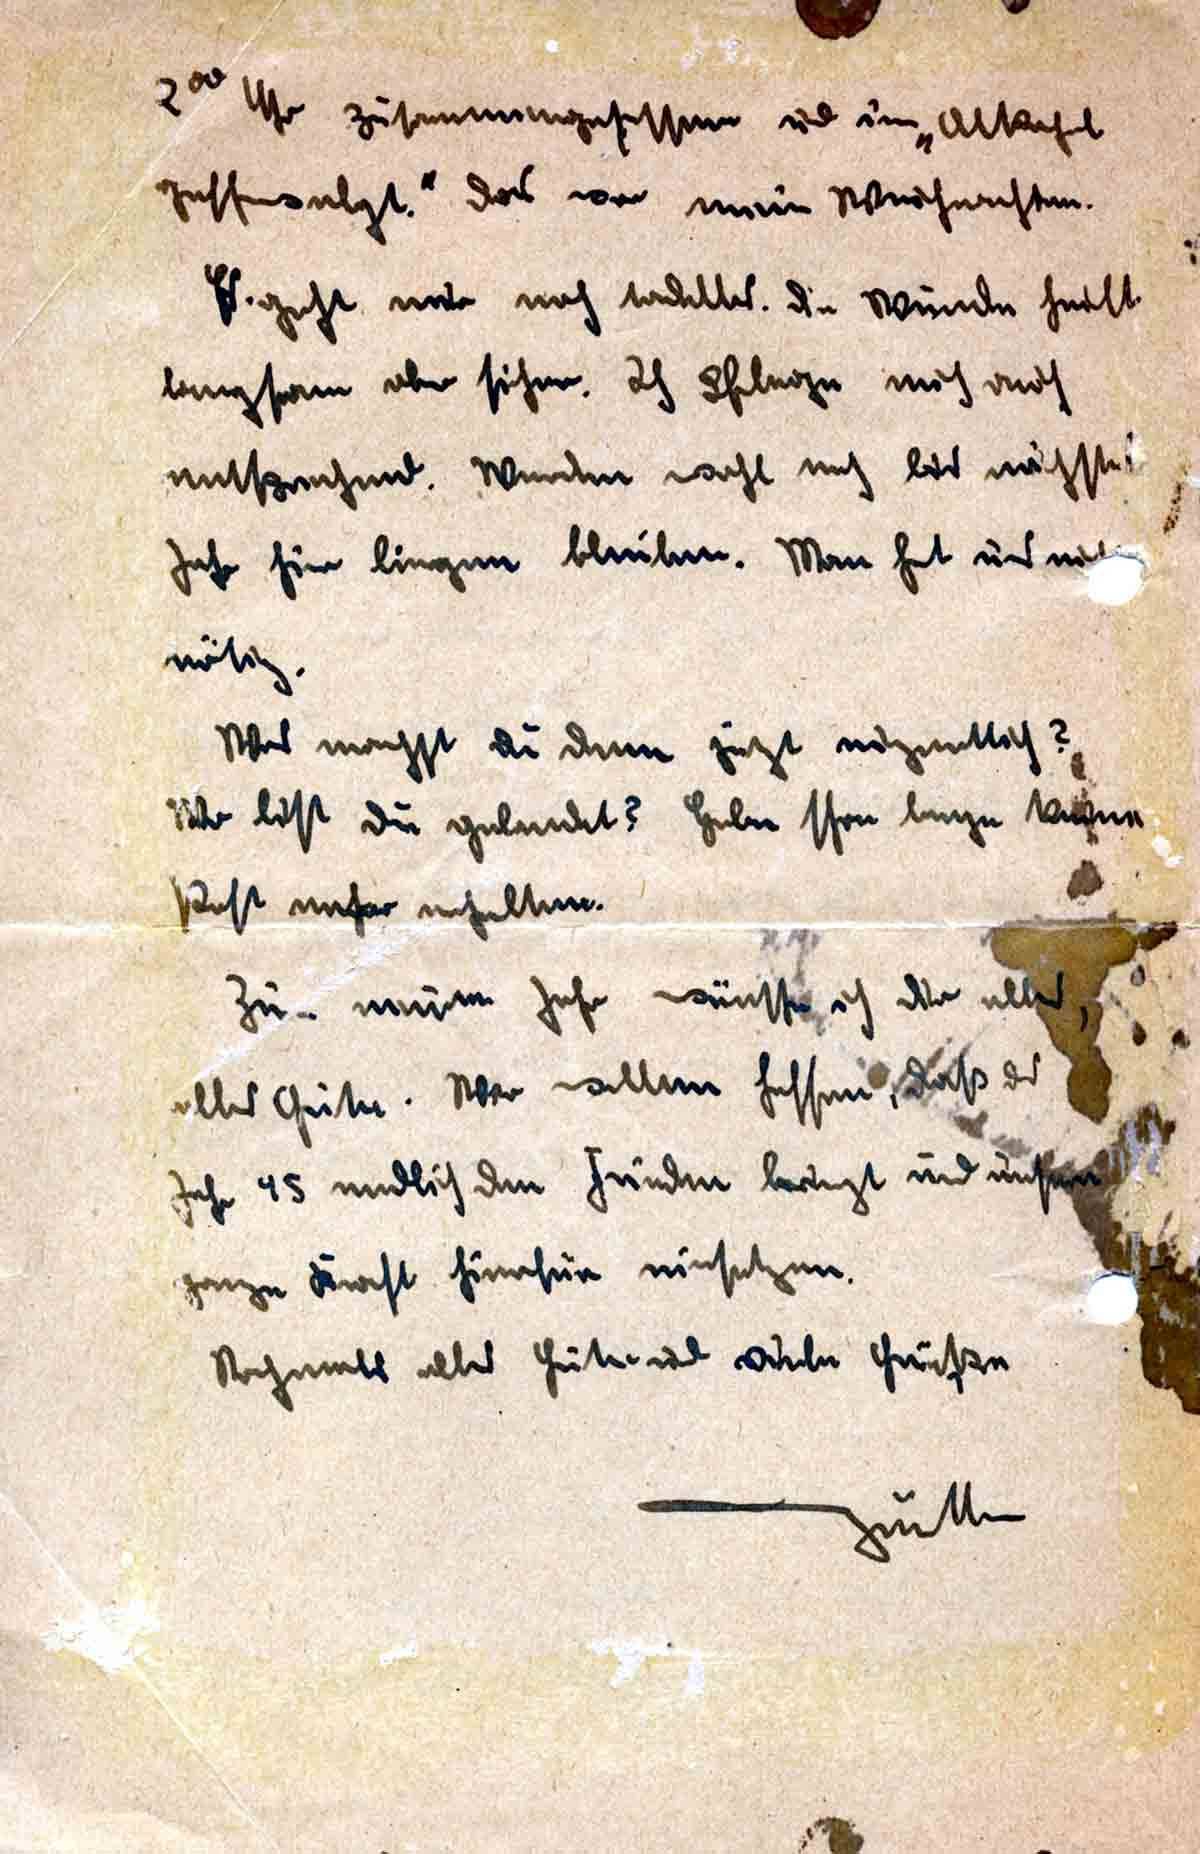 2⁰⁰ Uhr zusammengesessen und im „Alkohol
geschwelgt.“ Das war mein Weihnachten.
Es geht mir noch tadellos. Die Wunde heilt
langsam aber sicher. Ich pflege mich auch
entsprechend. Werden wohl noch bis nächstes
Jahr hier liegen bleiben. Man hat uns nicht
nötig.
Was machst du denn jetzt eigentlich?
Wo bist du gelandet? Habe schon lange keine
Post mehr erhalten.
Zum neuen Jahr wünsche ich dir alles,
alles Gute. Wir wollen hoffen, daß das
Jahr 45 endlich den Frieden bringt und unsere
ganze Kraft hierfür einsetzen.
Nochmals alles Gute und viele Grüße